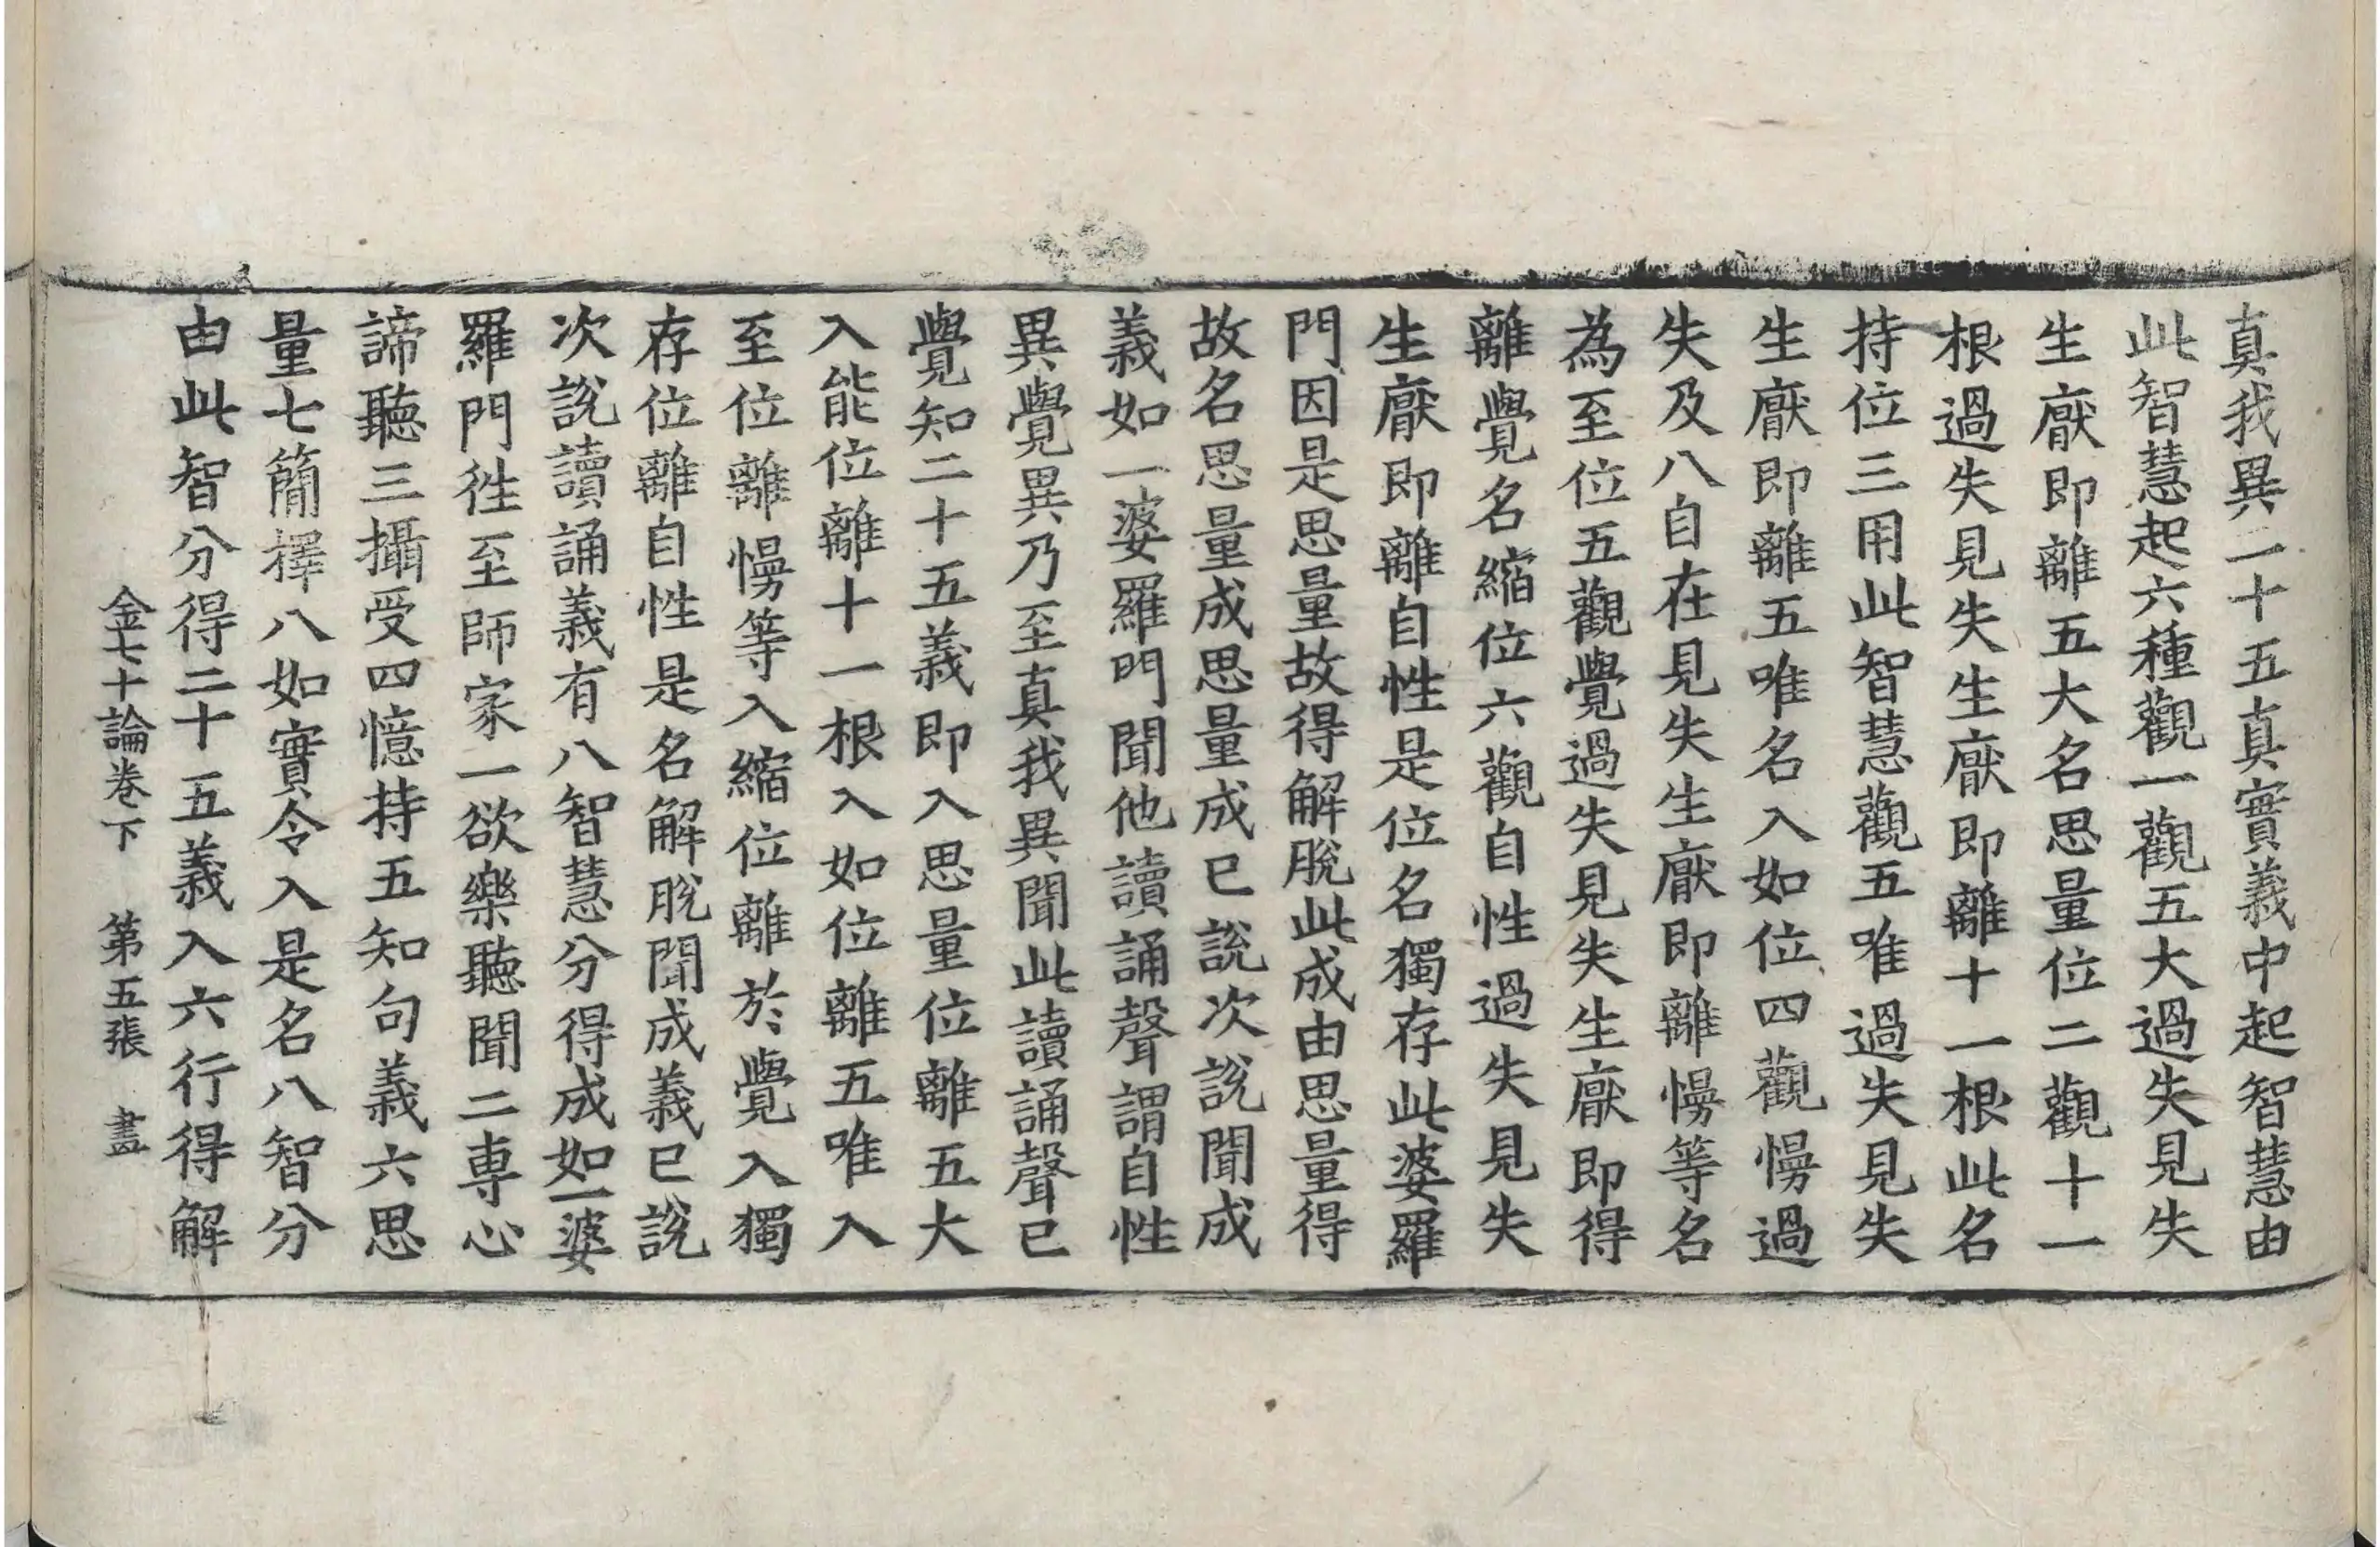 真我異二十五真實義中起智慧由
此智慧起六種觀一觀五大過失見失
生厭即離五大名思量位二觀十一
根過失見失生厭即離十一根此名
持位三用此智慧觀五唯過失見失
生厭即離五唯名入如位四觀慢過
失及八自在見失生厭即離慢等名
為至位五觀覺過失見失生厭即得
離覺名縮位六觀自性過失見失
生厭即離自性是位名獨存此婆羅
門因是思量故得解脫此成由思量得
故名思量成思量成已說次說聞成
義如一婆羅門聞他讀誦聲謂自性
異覺異乃至真我異聞此讀誦聲已
覺知二十五義即入思量位離五大
入能位離十一根入如位離五唯入
至位離慢等入縮位離於覺入獨
存位離自性是名解脫聞成義已說
次說讀誦義有八智慧分得成如一婆
羅門徃至師家一欲樂聽聞二專心
諦聽三攝受四憶持五知句義六思
量七簡擇八如實令入是名八智分
由此智分得二十五義入六行得解
金七十論卷下 第五張 晝